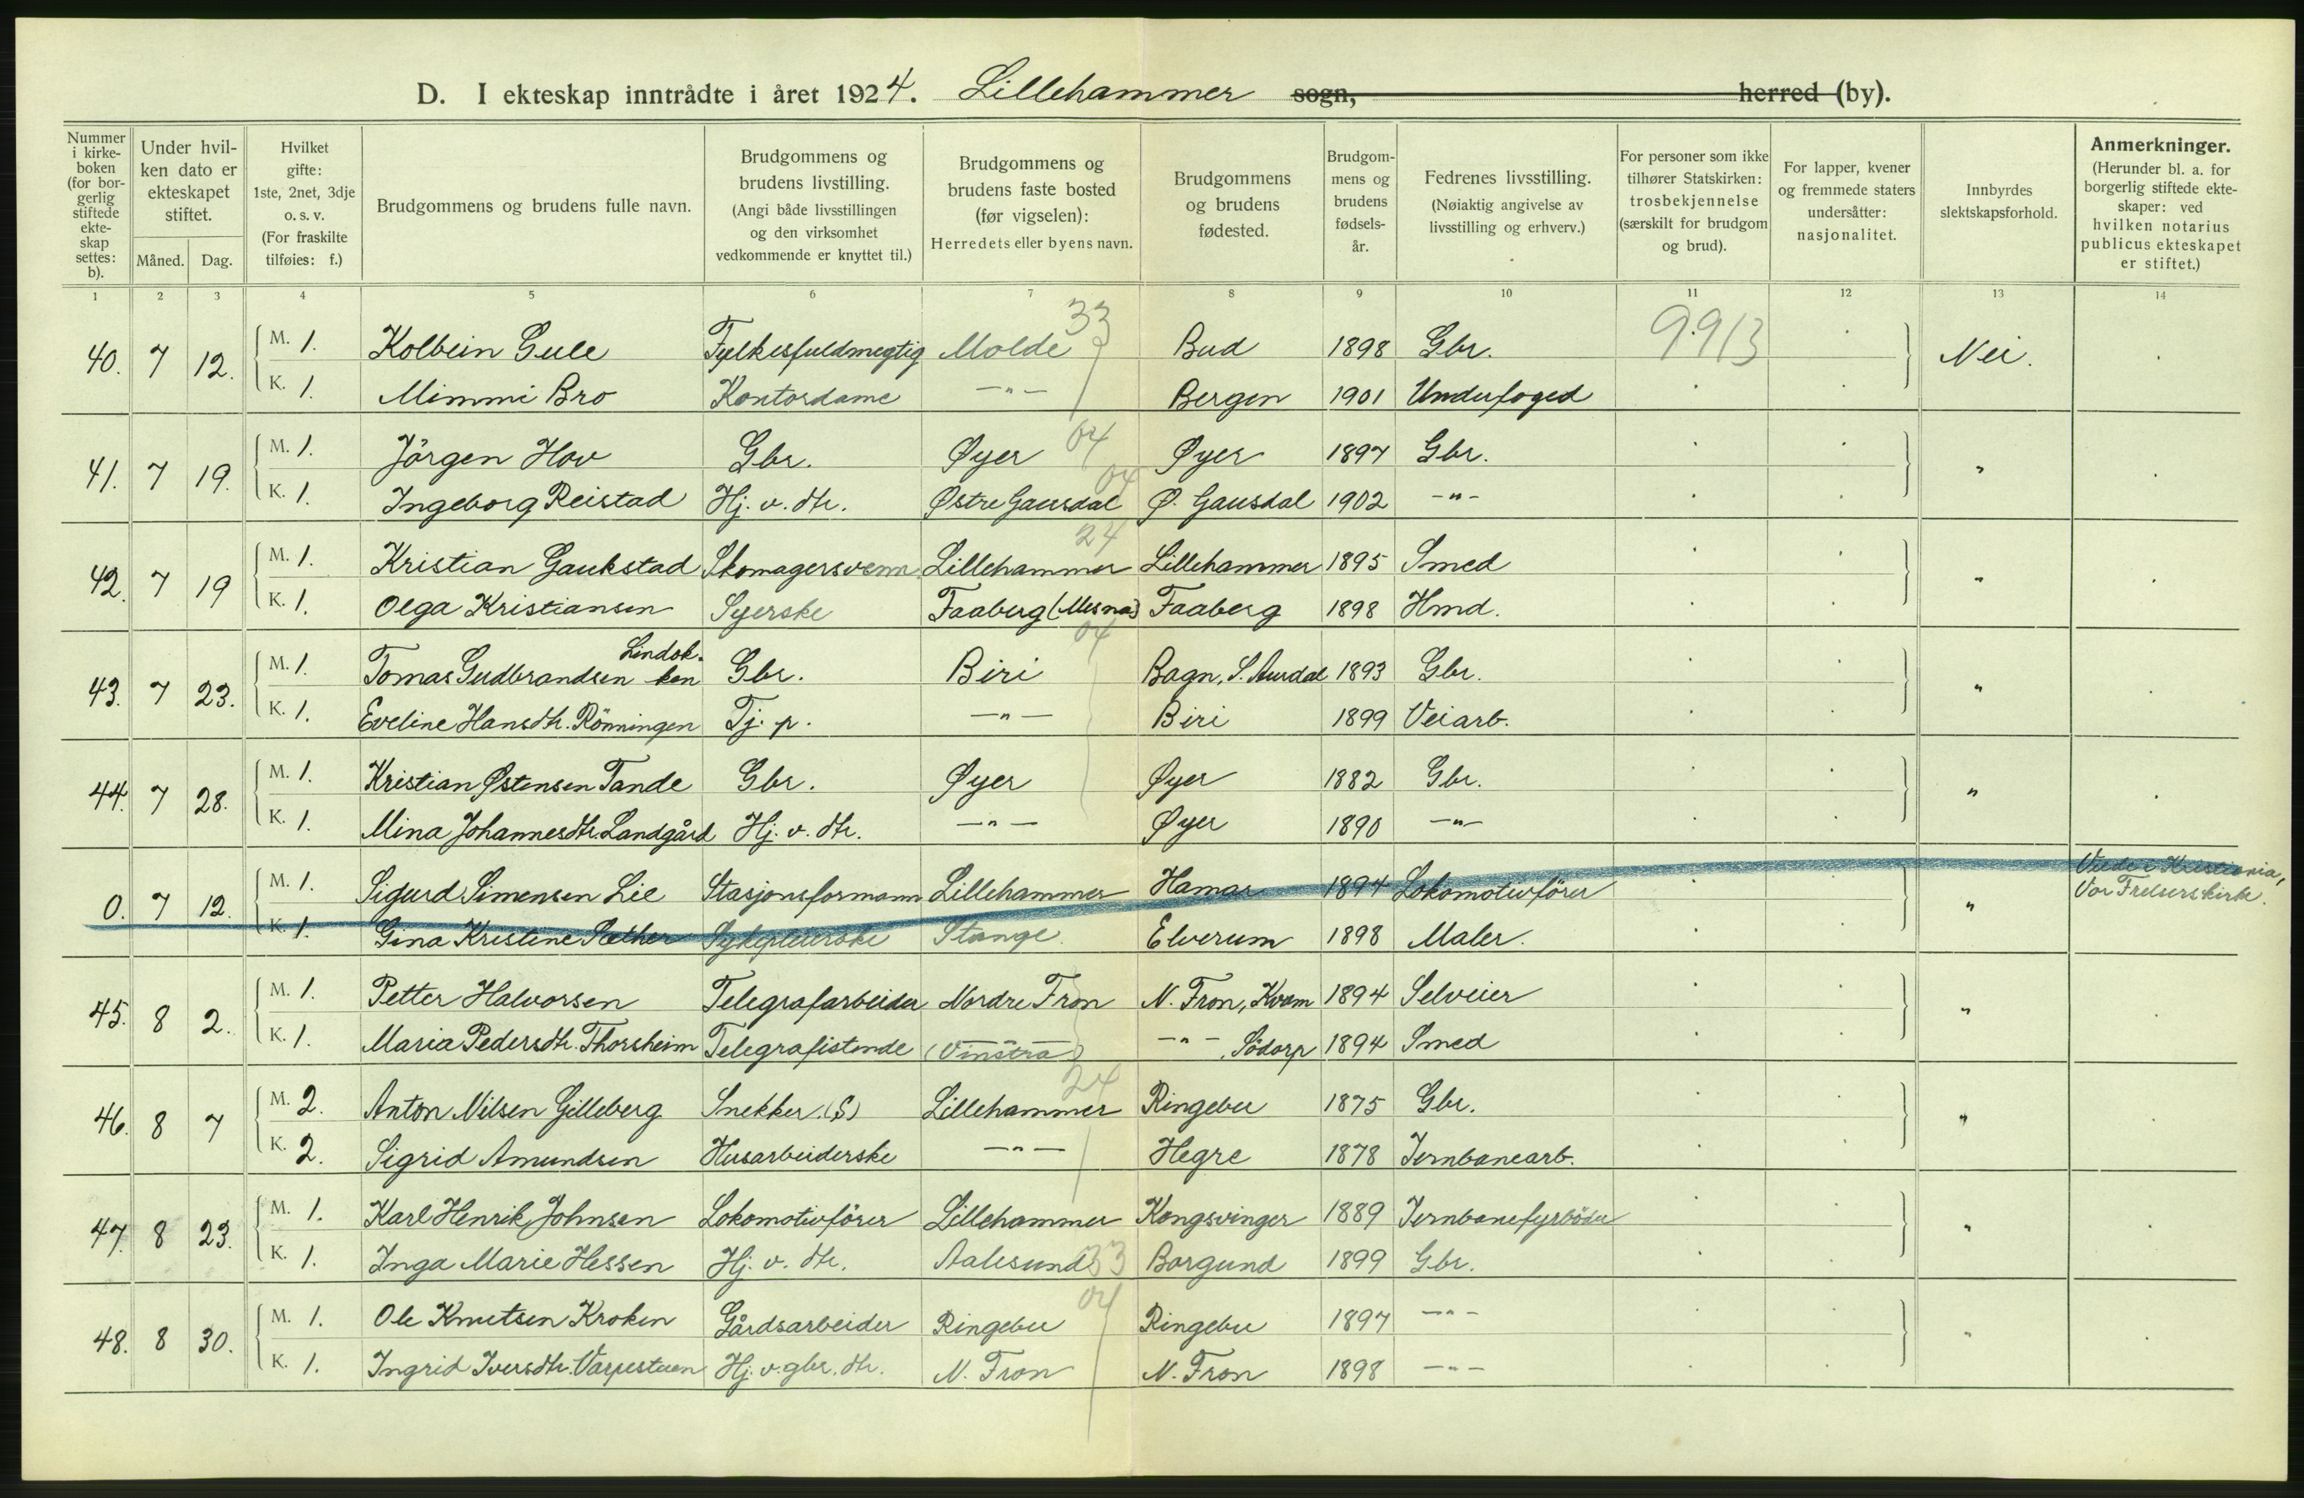 D. I ekteskap inntrådte i året 1924. Lillehammer sogn, herred (by).
Nummer i kirke-boken (for bor-gerlig stiftede ekte-skap settes: b).
Under hvil-ken dato er ekteskapet stiftet.
Måned. Dag.
Hvilket gifte: 1ste, 2net, 3dje o. s. v. (For fraskilte tilføies: f.)
Brudgommens og brudens fulle navn.
Brudgommens og brudens livstilling. (Angi både livsstillingen og den virksomhet vedkommende er knyttet til.)
Brudgommens og brudens faste bosted (før vigselen): Herredets eller byens navn.
Brudgommens og brudens fødested.
Brudgom-mens og brudens fødsels-år.
Fedrenes livsstilling. (Nøiaktig angivelse av livsstilling og erhverv.)
For personer som ikke tilhører Statskirken: trosbekjennelse (særskilt for brudgom og brud).
For lapper, kvener og fremmede staters undersåtter: nasjonalitet.
Innbyrdes slektskapsforhold.
Anmerkninger. (Herunder bl. a. for borgerlig stiftede ekte-skaper: ved hvilken notarius publicus ekteskapet er stiftet.)
1 2 3 4 5 6 7 8 9 10 11 12 13 14
33 9913
40. 7 12. M. 1. Kolbein Gule Fylkesfuldmegtig Molde Bud 1898 Gbr. Nei.
K. 1. Mimmi Bro Kontordame —"— Bergen 1901 Underfoged
04
41. 7 19. M. 1. Jörgen Hov Gbr. Øyer Øyer 1897 Gbr. "
04
K. 1. Ingeborg Reistad Hj. v. dtr. Østre Gausdal Ø. Gausdal 1902 —"—
24
42. 7 19 M. 1. Kristian Gaukstad Skomagersvenn Lillehammer Lillehammer 1895 Smed "
K. 1. Olga Kristiansen Syerske Faaberg (Mesna) Faaberg 1898 Hmd.
04
43. 7 23. M. 1. Tomas Gudbrandsen Lindok-ken Gbr. Biri Bagn, S. Aurdal 1893 Gbr. "
K. 1. Eveline Hansdtr. Rönningen Tj. p. —"— Biri 1899 Veiarb.
44. 7 28. M. 1. Kristian Østensen Tande Gbr. Øyer Øyer 1882 Gbr. "
K. 1. Mina Johannesdtr. Landgård Hj. v. dtr. —"— Øyer 1890 —"—
0. 7 12. M. 1. Sigurd Simensen Lie Stasjonsformann Lillehammer Hamar 1894 Lokomotivförer " Viede i Kristiania, Vor Frelsers kirke.
K. 1. Gina Kristine Sæther Sykepleierske Stange. Elverum 1898 Maler.
45. 8 2. M. 1. Petter Halvorsen Telegrafarbeider Nordre Fron N. Fron, Kvam 1894 Selveier "
K. 1. Maria Pedersdtr. Thorsheim Telegrafistinde (Vinstra) —"—, Södorp 1894 Smed
24
46. 8 7 M. 2. Anton Nilsen Gilleberg Snekker (S) Lillehammer Ringebu 1875 Gbr. "
K. 2. Sigrid Amundsen Husarbeiderske —"— Hegre 1878 Jernbanearb.
47. 8 23. M. 1. Karl Henrik Johnsen Lokomotivförer Lillehammer Kongsvinger 1889 Jernbanefyrböder "
K. 1. Inga Marie Hessen Hj. v. dtr. Aalesund 33 Borgund 1899 Gbr.
04
48. 8 30. M. 1. Ole Knutsen Kroken Gårdsarbeider Ringebu Ringebu 1897 —"— "
K. 1. Ingrid Iversdtr. Varpestuen Hj. v. gbr. dtr. N. Fron N. Fron 1898 —"—